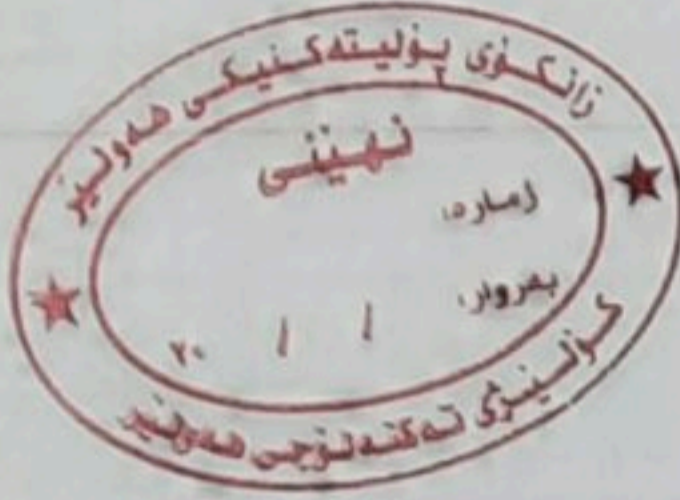 زانکۆی پۆلیتەکنیکی هەولێر
نهێنی
ژمارە:
بەروار:
/ / ٢٠
کۆلێژی تەکنەلۆجی هەولێر